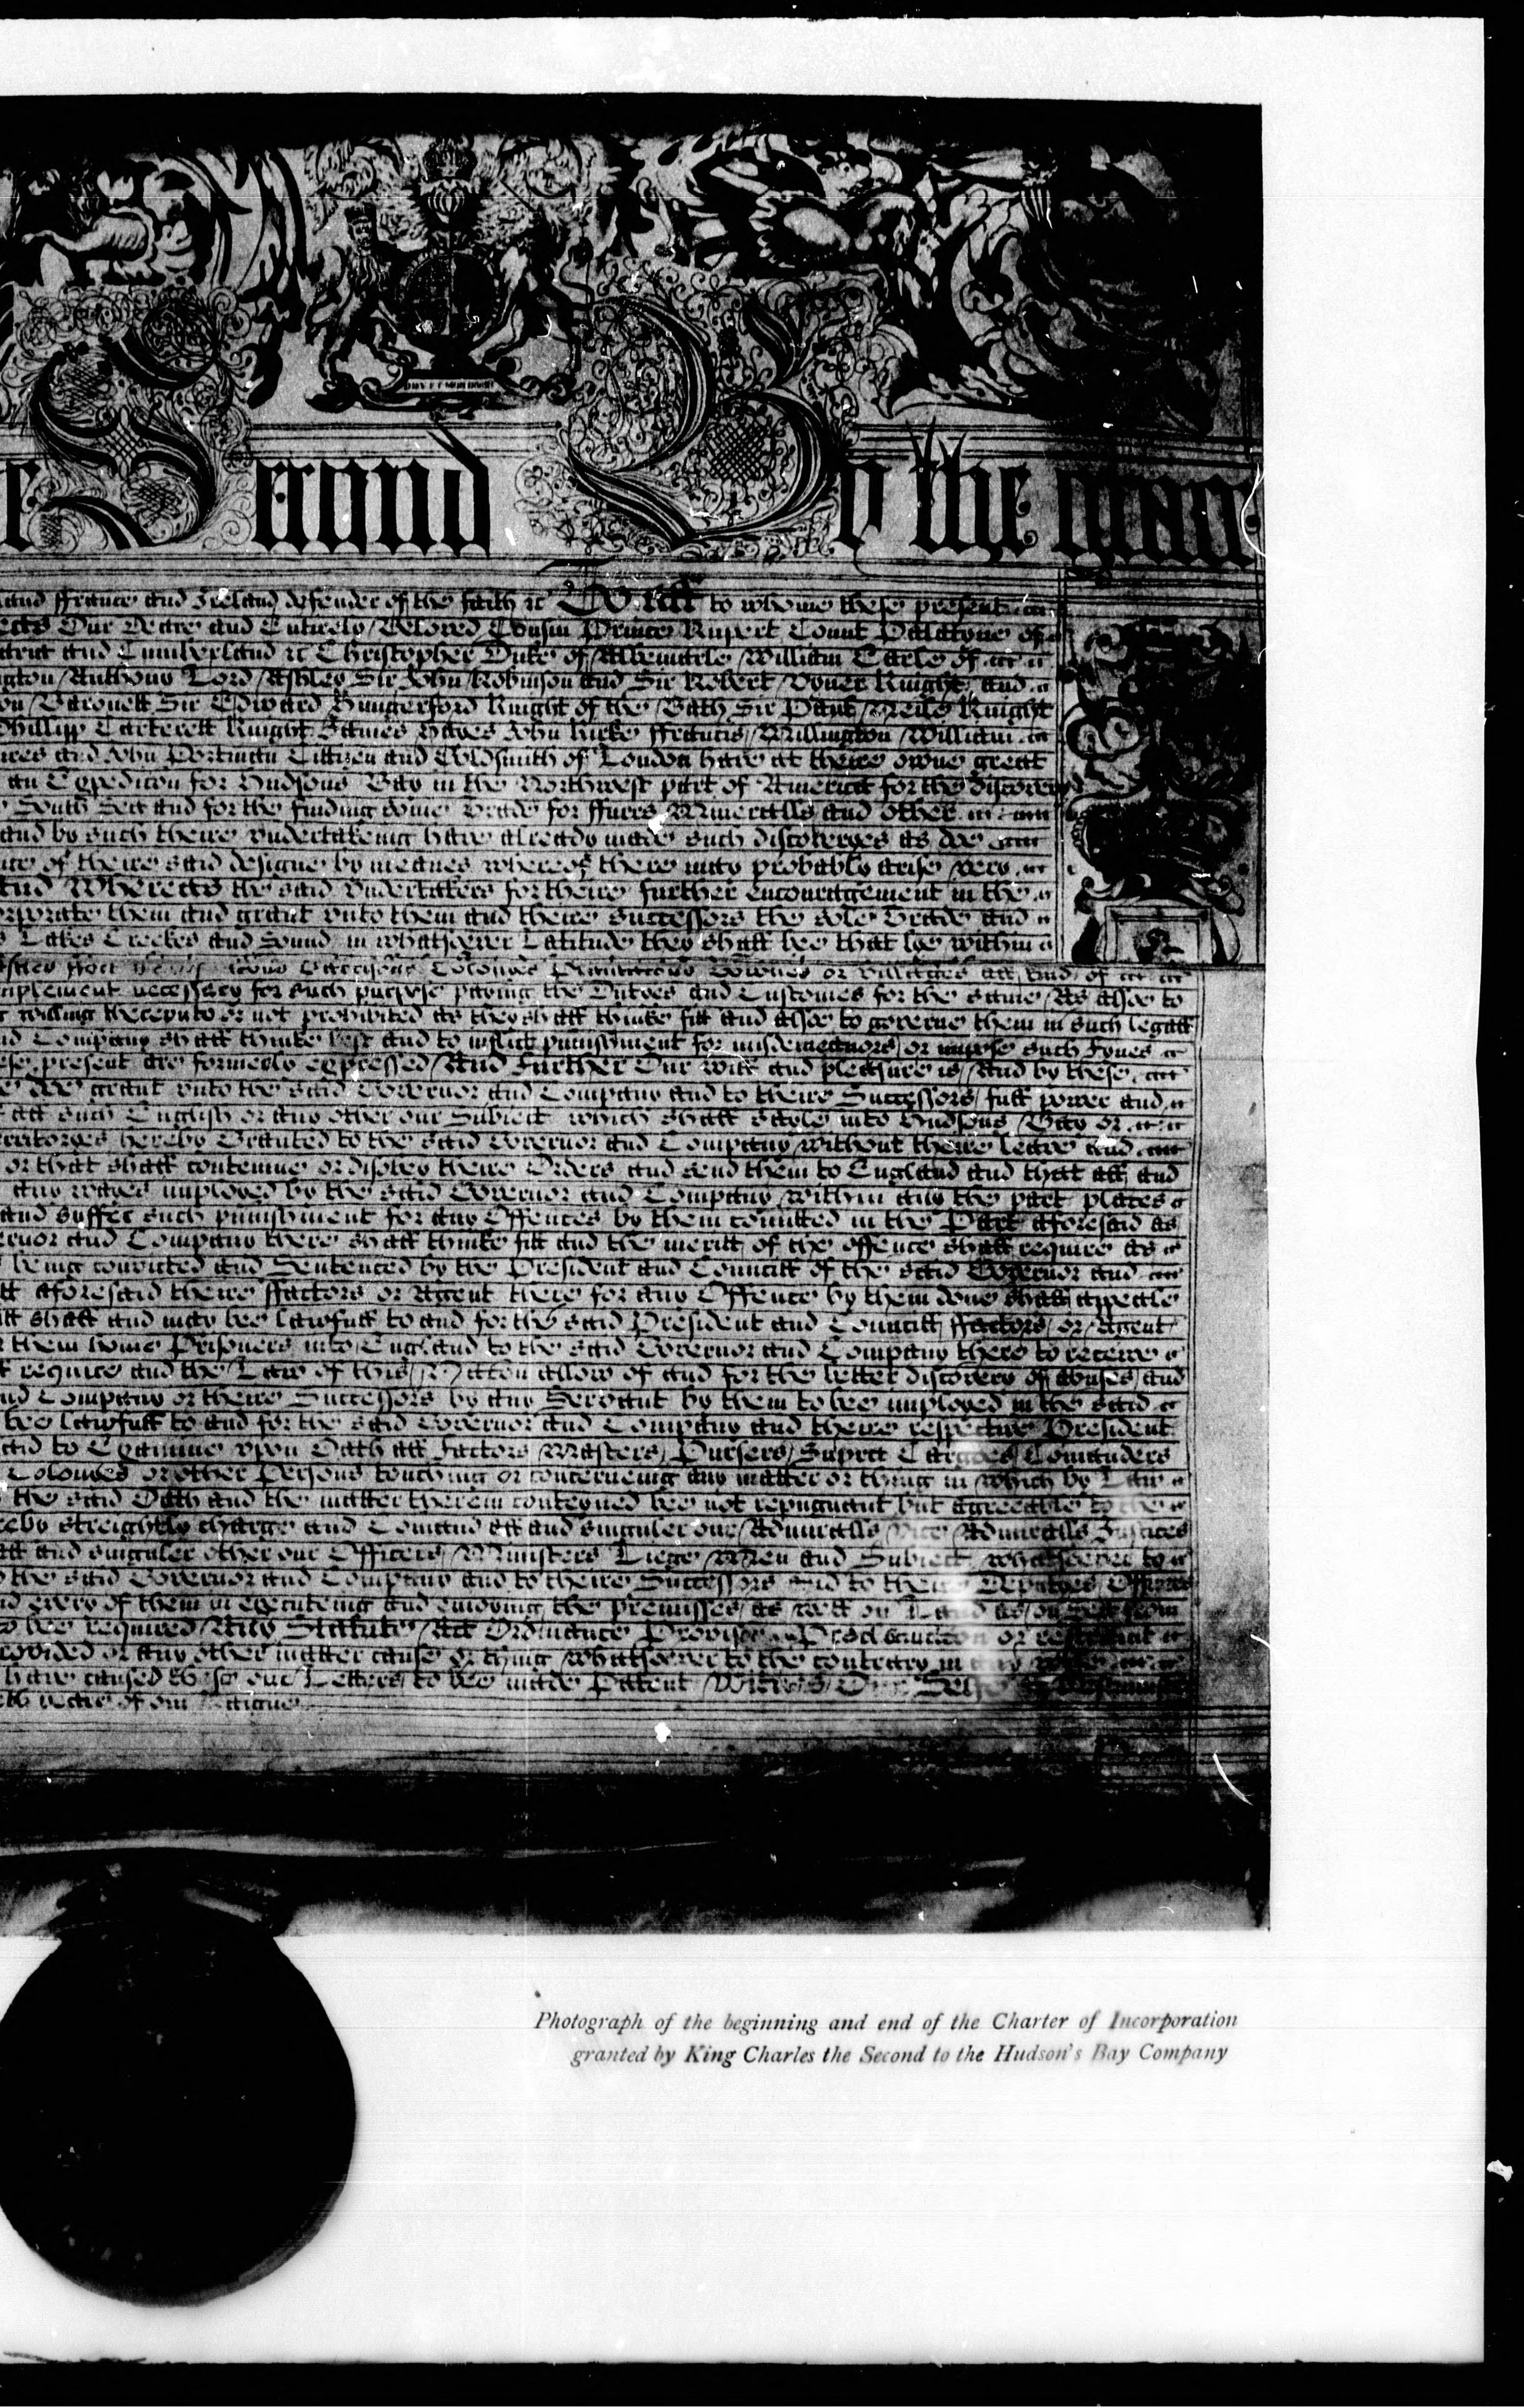 DIEV ET MON DROIT
e Second By the grace
land ffrance and Ireland defender of the faith &c To All to whome these present
Our Deare and Entirely Beloved Cousin Prince Rupert Count Palatyne of
and Cumberland &c Christopher Duke of Albemarle William Earle of
gton Anthony Lord Ashley Sir John Robinson and Sir Robert Vyner Knight and
on Baronett Sir Edward Hungerford Knight of the Bath Sir Paul Neile Knight
Phillip Carterett Knight James Hayes John Kirke ffrancis Millington William
and John Portman Cittizen and Goldsmith of London have at theire owne great
an Expedicon for Hudsons Bay in the Northwest part of America for the discovery
South Sea and for the finding some Trade for ffurrs Mineralls and other
and by such theire undertakeing have already made such discoveryes as doe
of theire said designe by meanes whereof there may probably arise very
And Whereas the said Undertakers for theire further encouragement in the
orporate them and grant unto them and theire successors the sole Trade and
Lakes Creekes and Sounds in whatsoever Latitude they shall bee that lye within
Colonyes Plantacons Townes or Villages all kinds of
mplement necessary for such purpose paying the Dutyes and Customes for the same As alsoe to
willing thereunto or not prohibited as they shall thinke fitt and alsoe to governe them in such legall
nd Company shall thinke best and to inflict punishment for misdemeanors or impose such fynes
ese present are formerly expressed And further Our will and pleasure is And by these
doe grant unto the said Governor and Company and to theire Successors full power and
all such English or any other our Subject which shall sayle into Hudsons Bay or
erritoryes hereby Granted to the said Governor and Company without theire leave and
or that shall contemne or disobey theire Orders and send them to England and that all and
any wayes imployed by the said Governor and Company within any the part places
and suffer such punishment for any Offences by them comitted in the Part aforesaid as
ernor and Company there shall thinke fitt and the meritt of the offence shall require as
being convicted and Sentenced by the President and Councill of the said Governor and
aforesaid theire ffactors or Agent there for any Offence by them done shall appeale
shall and may bee lawfull to and for the said President and Councill ffactors or Agent
them home Prisoners into England to the said Governor and Company there to receive
require and the Law of this Nation allow of and for the better discovery of abuses and
nd Company or theire Successors by any Servant by them to bee imployed in the said
bee lawfull to and for the said Governor and Company and theire respective President
to Examine upon Oath all factors Masters Pursers Supra Cargoes Comanders
Colonyes or other Persons touching or concerneing any matter or thing in which by Law
the said Oath and the matter therein conteyned bee not repugnant but agreeable to the
reby streightly charge and Comand all and singuler our Admiralls Vice Admiralls Justices
all and singuler other our Officers Ministers Liege Men and Subject whatsoever to
the said Governor and Company and to theire Successors and to theire Deputyes Officers
nd every of them in executeing and enjoying the premisses as well on Land as on Sea from
bee required Any Statute Act Ordinance Proviso Proclamacon or restraint
rovided or any other matter cause or thing whatsoever to the contrary in any
have caused these our Letters to bee made Patent Witnes Our Selfe
yeare of our Raigne
Photograph of the beginning and end of the Charter of Incorporation
granted by King Charles the Second to the Hudson's Bay Company